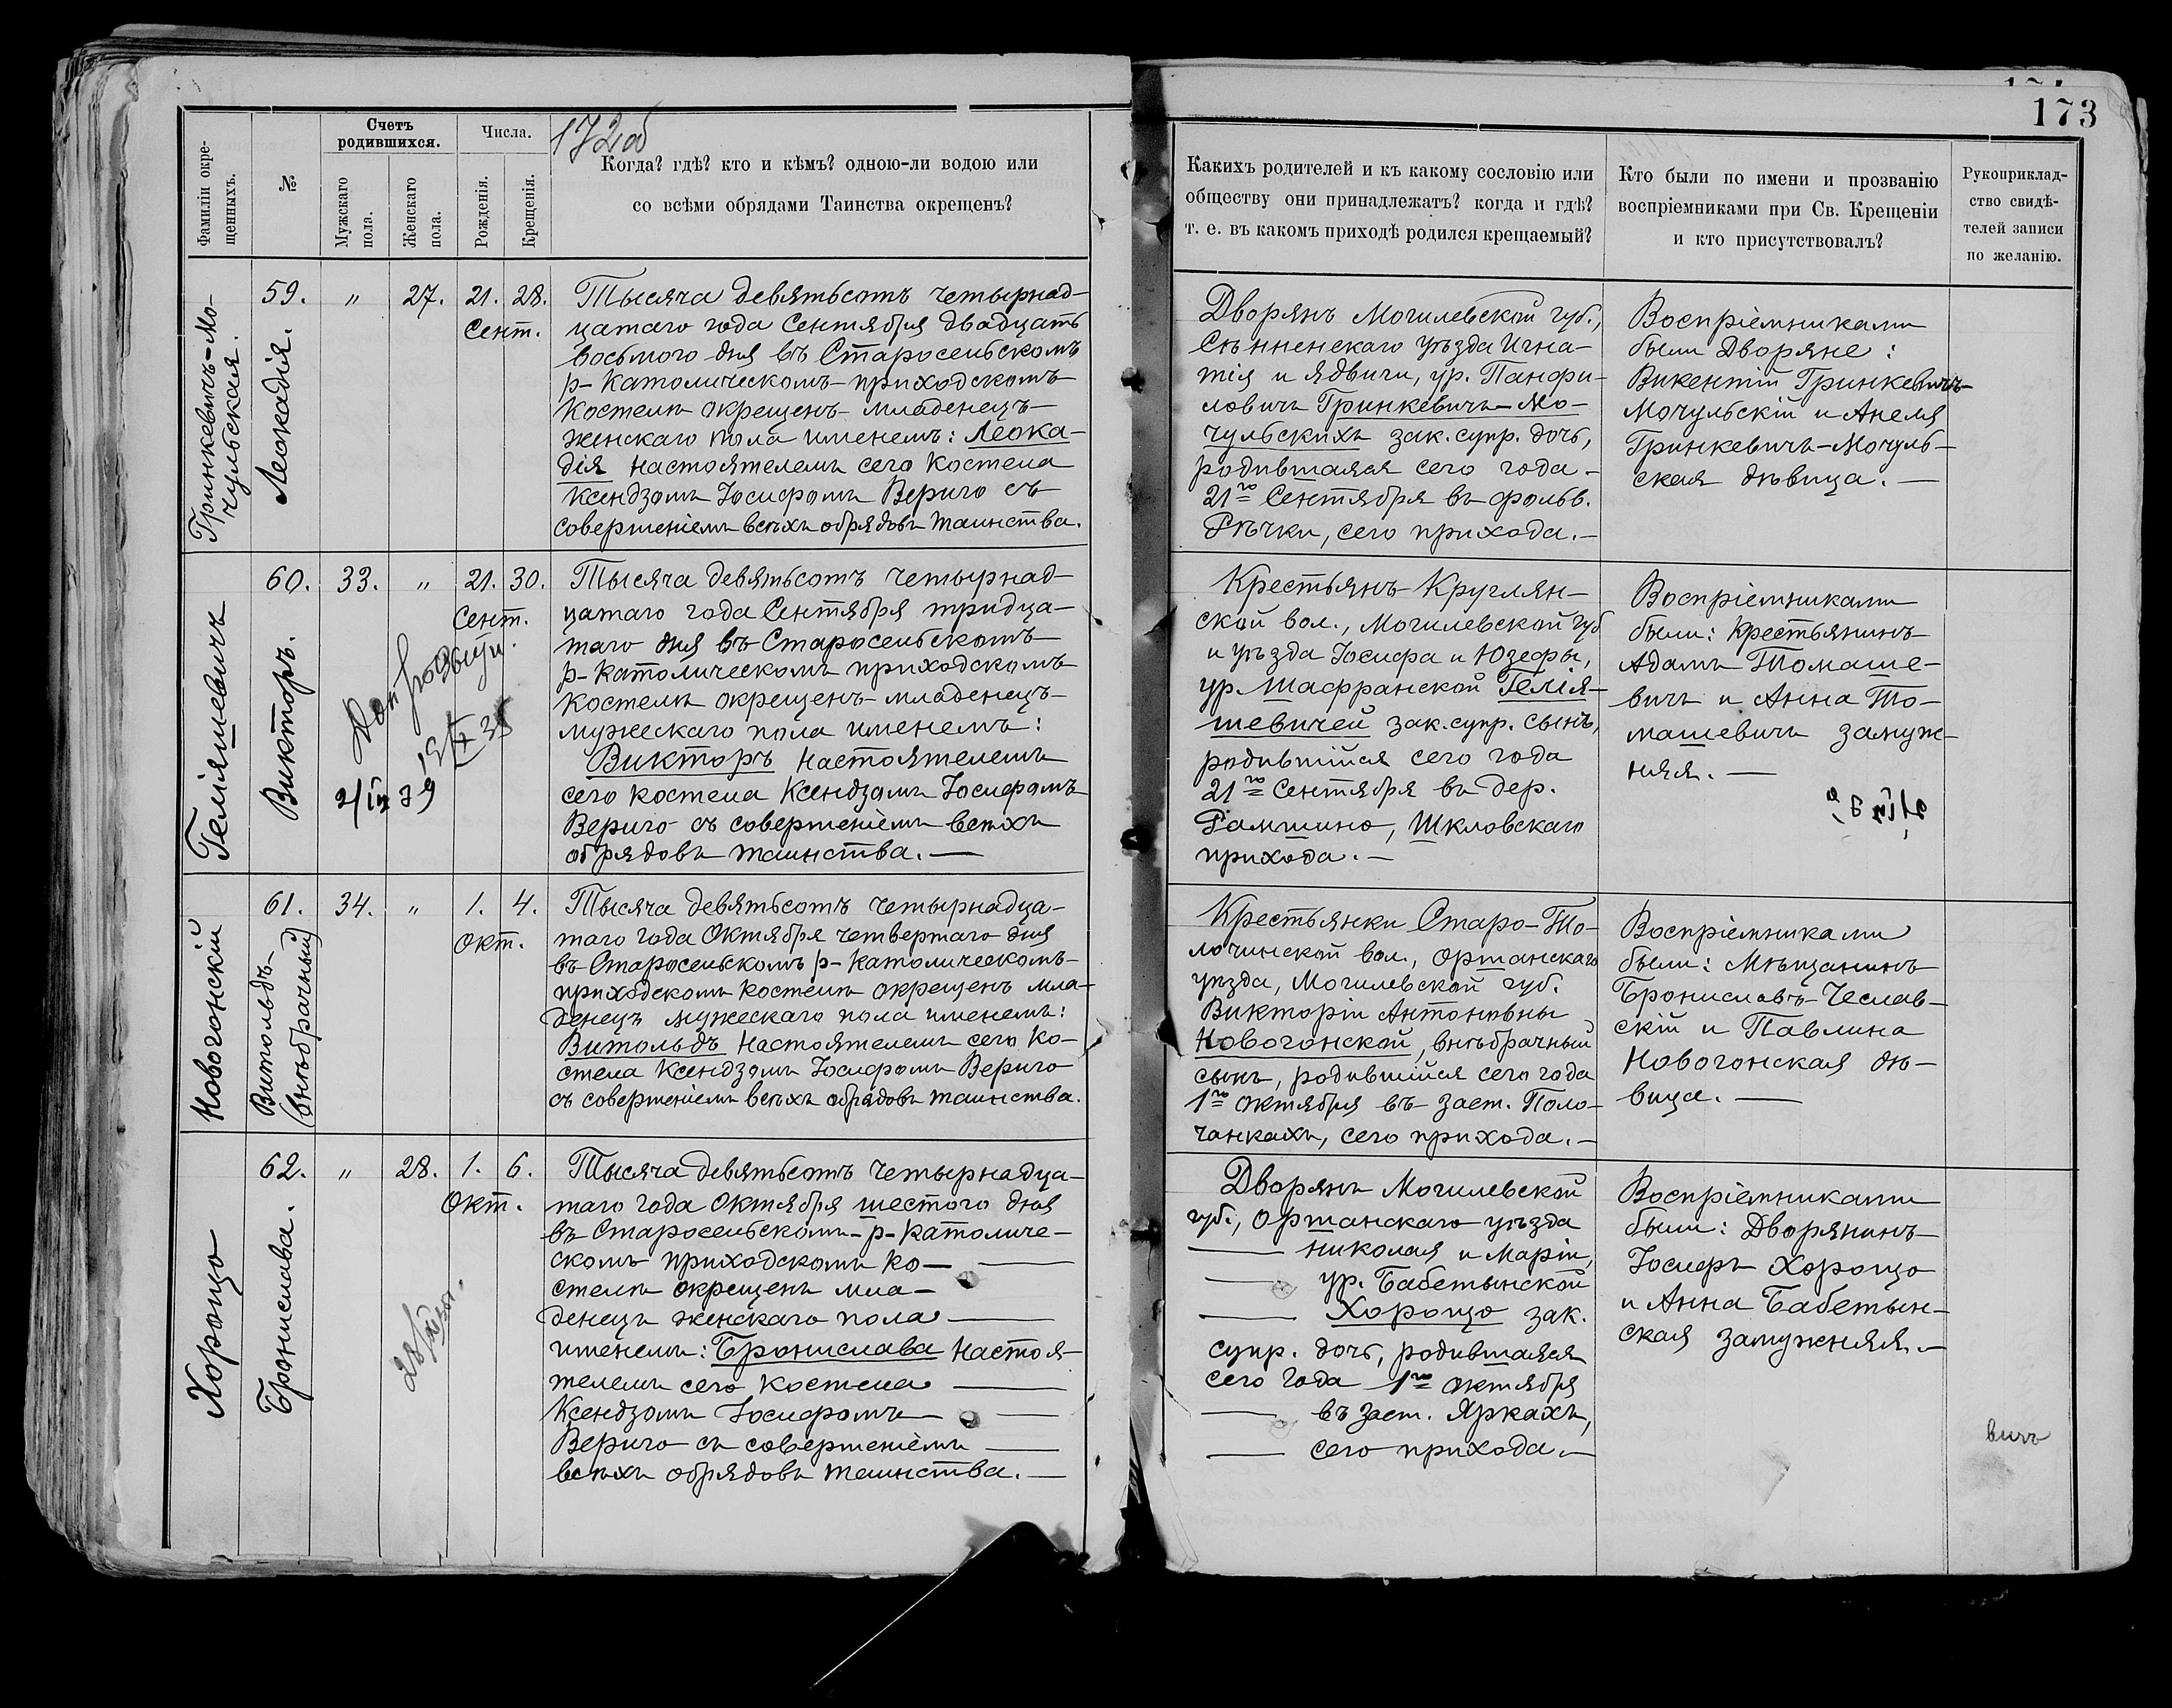 173
172об
Фамиліи окре-
щенныхъ.
№
Счетъ
родившихся.
Мужскаго
пола.
Женскаго
пола.
Числа.
Рожденія.
Крещенія.
Когда? гдѣ? кто и кѣмъ? одною-ли водою или
со всѣми обрядами Таинства окрещенъ?
Какихъ родителей и къ какому сословію или
обществу они принадлежатъ? когда и гдѣ?
т. е. въ какомъ приходѣ родился крещаемый?
Кто были по имени и прозванію
воспріемниками при Св. Крещеніи
и кто присутствовалъ?
Рукоприклад-
ство свидѣ-
телей записи
по желанію.
Гринкевичъ-Мо-
чульская.
59.
Леокадія.
"
27.
21. 28.
Сент.
Тысяча девятьсотъ четырнад-
цатаго года Сентября двадцать
восьмого дня въ Старосельскомъ
р-католическомъ приходскомъ
костелѣ окрещенъ младенецъ
женскаго пола именемъ: Леока-
дія настоятелемъ сего костела
Ксендзомъ Іосифомъ Вериго съ
совершеніемъ всѣхъ обрядовъ таинства.
Дворянъ Могилевской губ.,
Сѣнненскаго уѣзда Игна-
тія и Ядвиги, ур. Панфи-
ловичъ Гринкевичъ-Мо-
чульскихъ зак. супр. дочь,
родившаяся сего года
21го Сентября въ фольв.
Рѣчки, сего прихода.—
Воспріемниками
были Дворяне:
Викентій Гринкевичъ-
Мочульскій и Анеля
Гринкевичъ-Мочуль-
ская дѣвица.—
Геліяшевичъ
60.
Викторъ.
33.
"
21. 30.
Сент.
2/IX 39
Тысяча девятьсотъ четырнад-
цатаго года Сентября тридца-
таго дня въ Старосельскомъ
р-католическомъ приходскомъ
костелѣ окрещенъ младенецъ
мужескаго пола именемъ:
Викторъ настоятелемъ
сего костела Ксендзомъ Іосифомъ
Вериго съ совершеніемъ всѣхъ
обрядовъ таинства.—
Крестьянъ Круглян-
ской вол., Могилевской губ
и уѣзда Іосифа и Юзефы,
ур. Шафранской Гелія-
шевичей зак. супр. сынъ,
родившійся сего года
21го Сентября въ дер.
Рамшино, Шкловскаго
прихода.—
Воспріемниками
были: Крестьянинъ
Адамъ Томаше-
вичъ и Анна То-
машевичъ замуж-
няя.—
Новогонскій
61.
Витольдъ
(внѣбрачный)
34.
"
1. 4.
Окт.
Тысяча девятьсотъ четырнадца-
таго года Октября четвертаго дня
въ Старосельскомъ р-католическомъ
приходскомъ костелѣ окрещенъ мла-
денецъ мужескаго пола именемъ:
Витольдъ настоятелемъ сего ко-
стела Ксендзомъ Іосифомъ Вериго
съ совершеніемъ всѣхъ обрядовъ таинства.
Крестьянки Старо-То-
лочинской вол., Оршанскаго
уѣзда, Могилевской губ.
Викторіи Антоновны
Новогонской, внѣбрачный
сынъ, родившійся сего года
1го Октября въ заст. Поло-
чанкахъ, сего прихода.—
Воспріемниками
были: Мѣщанинъ
Брониславъ Чеслав-
скій и Павлина
Новогонская дѣ-
вица.—
Хорощо
62.
Бронислава.
"
28.
1. 6.
Окт.
Тысяча девятьсотъ четырнадца-
таго года Октября шестого дня
въ Старосельскомъ р-католиче-
скомъ приходскомъ ко-
стелѣ окрещенъ мла-
денецъ женскаго пола
именемъ: Бронислава настоя-
телемъ сего костела
Ксендзомъ Іосифомъ
Вериго съ совершеніемъ
всѣхъ обрядовъ таинства.—
Дворянъ Могилевской
губ., Оршанскаго уѣзда
Николая и Маріи,
ур. Бабетынской
Хорощо зак.
супр. дочь, родившаяся
сего года 1го Октября
въ заст. Яркахъ,
сего прихода.—
Воспріемниками
были: Дворянинъ
Іосифъ Хорощо
и Анна Бабетын-
ская замужняя.—
вичъ